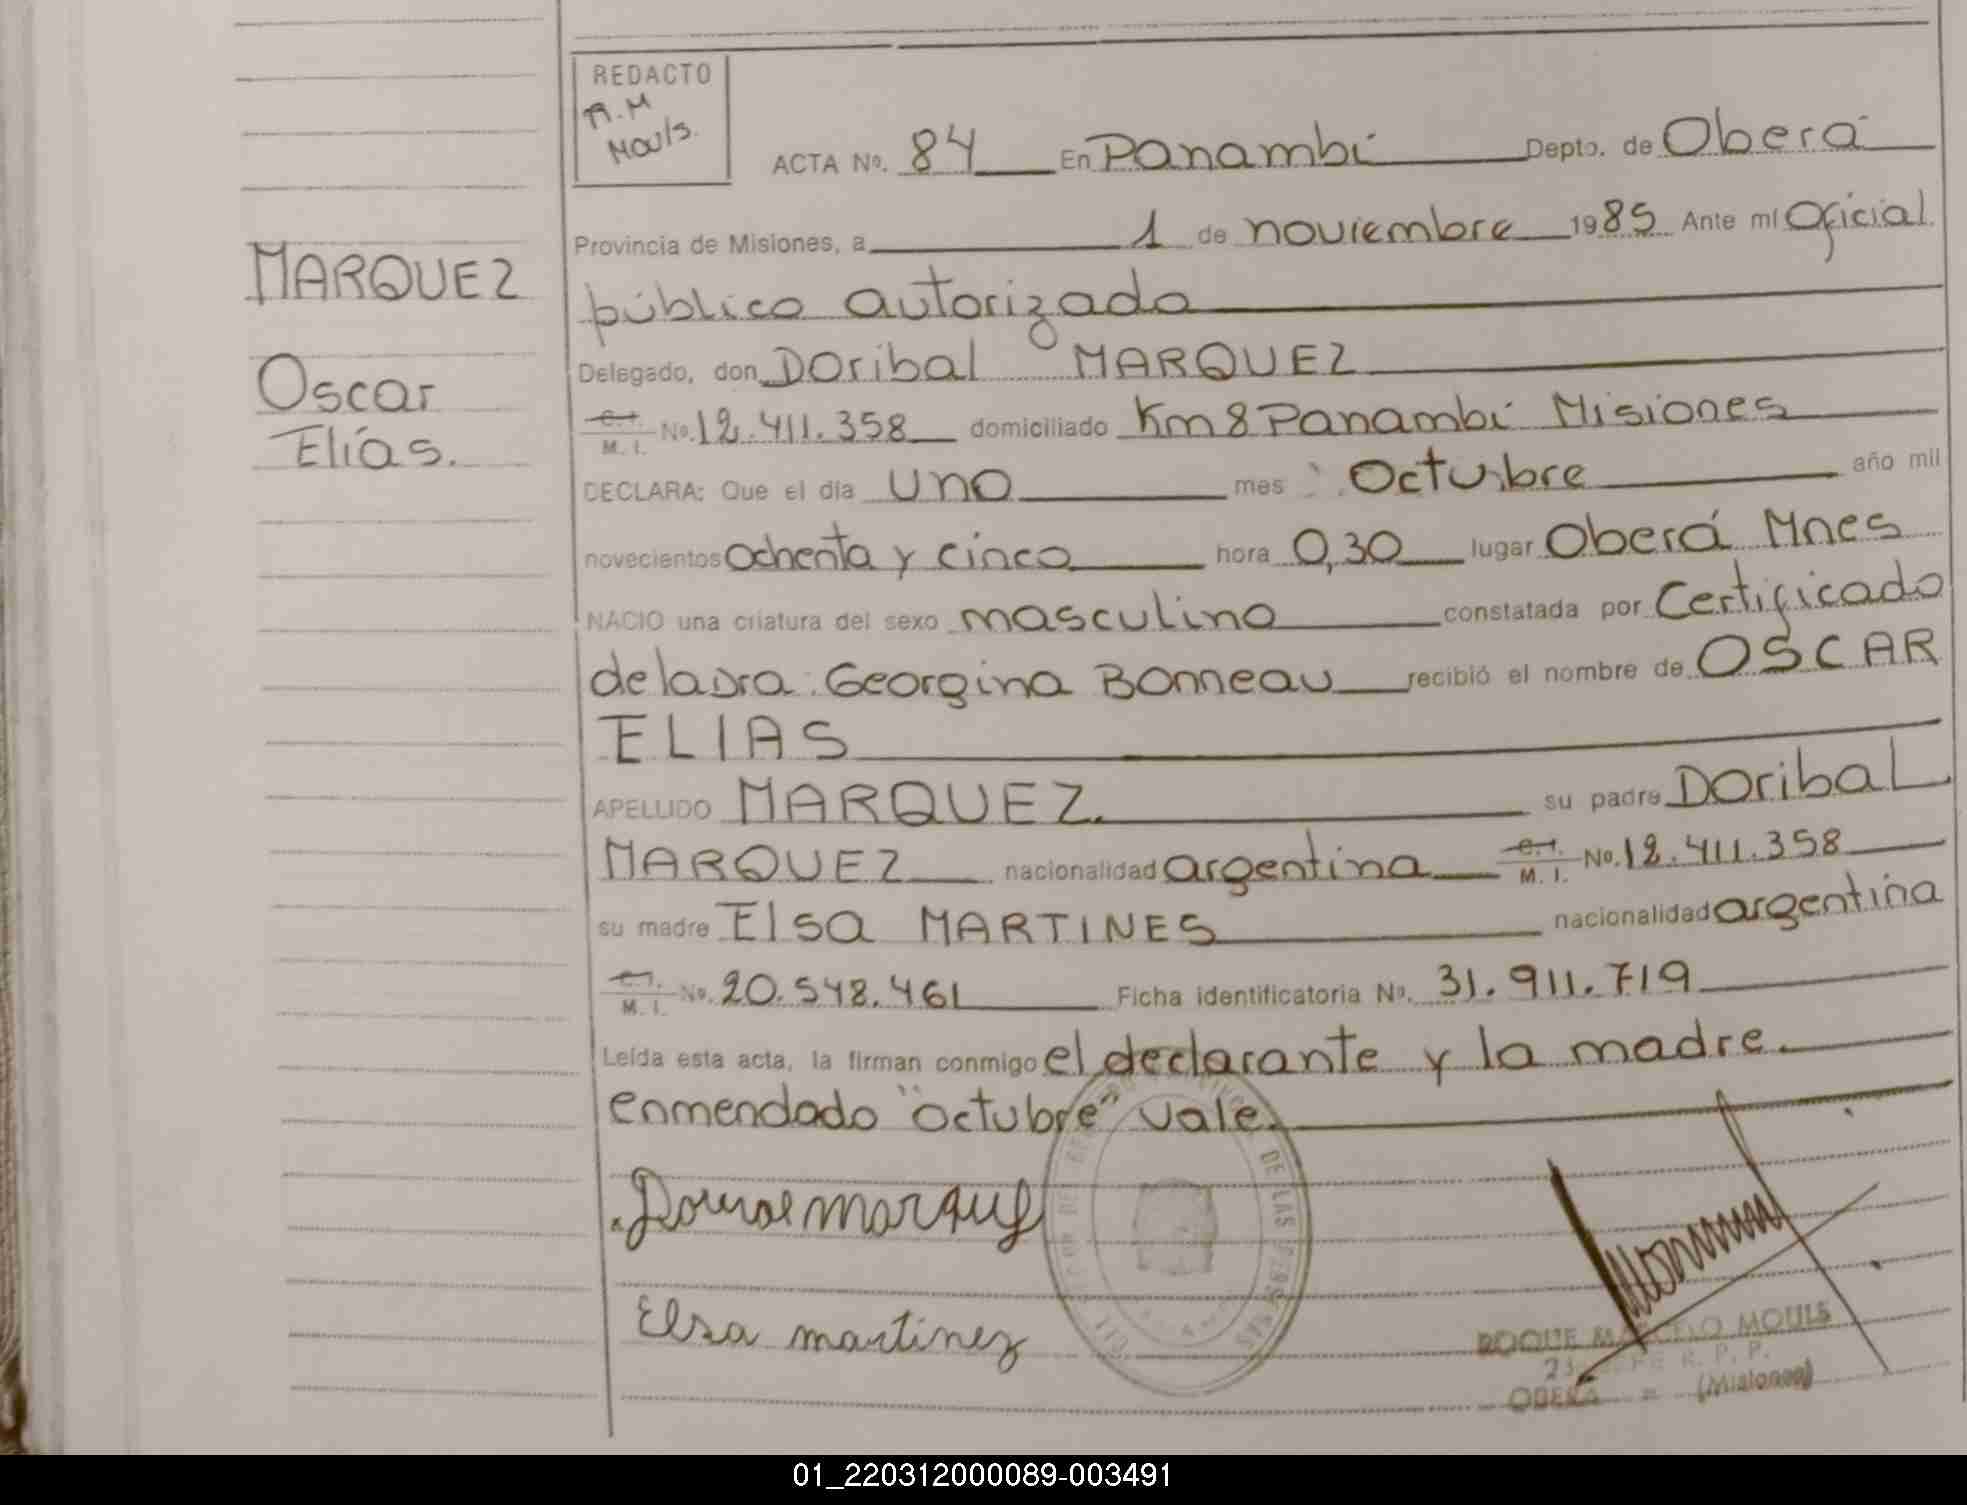 REDACTO
R.M
Mouls.
ACTA No. 84 En Panambí Depto. de Oberá
Provincia de Misiones, a 1 de noviembre 1985 Ante mí Oficial
público autorizado
MARQUEZ
Delegado, don Doribal MARQUEZ
Oscar
C.I. M.I. No. 12.411.358 domiciliado Km 8 Panambí Misiones
Elías.
DECLARA: Que el día uno mes Octubre año mil
novecientos ochenta y cinco hora 0,30 lugar Oberá Mnes
NACIO una criatura del sexo masculino constatada por Certificado
de la Dra. Georgina Bonneau recibió el nombre de OSCAR
ELIAS
APELLIDO MARQUEZ. su padre Doribal
MARQUEZ nacionalidad argentina C.I. M.I. No. 12.411.358
su madre Elsa MARTINES nacionalidad argentina
C.I. M.I. No. 20.548.461 Ficha identificatoria No. 31.911.719
Leída esta acta, la firman conmigo el declarante y la madre.
enmendado "octubre" vale.
DE LAS
Elsa martinez
ROQUE MARCELO MOULS
R. P. P.
OBERA - (Misiones)
01_220312000089-003491